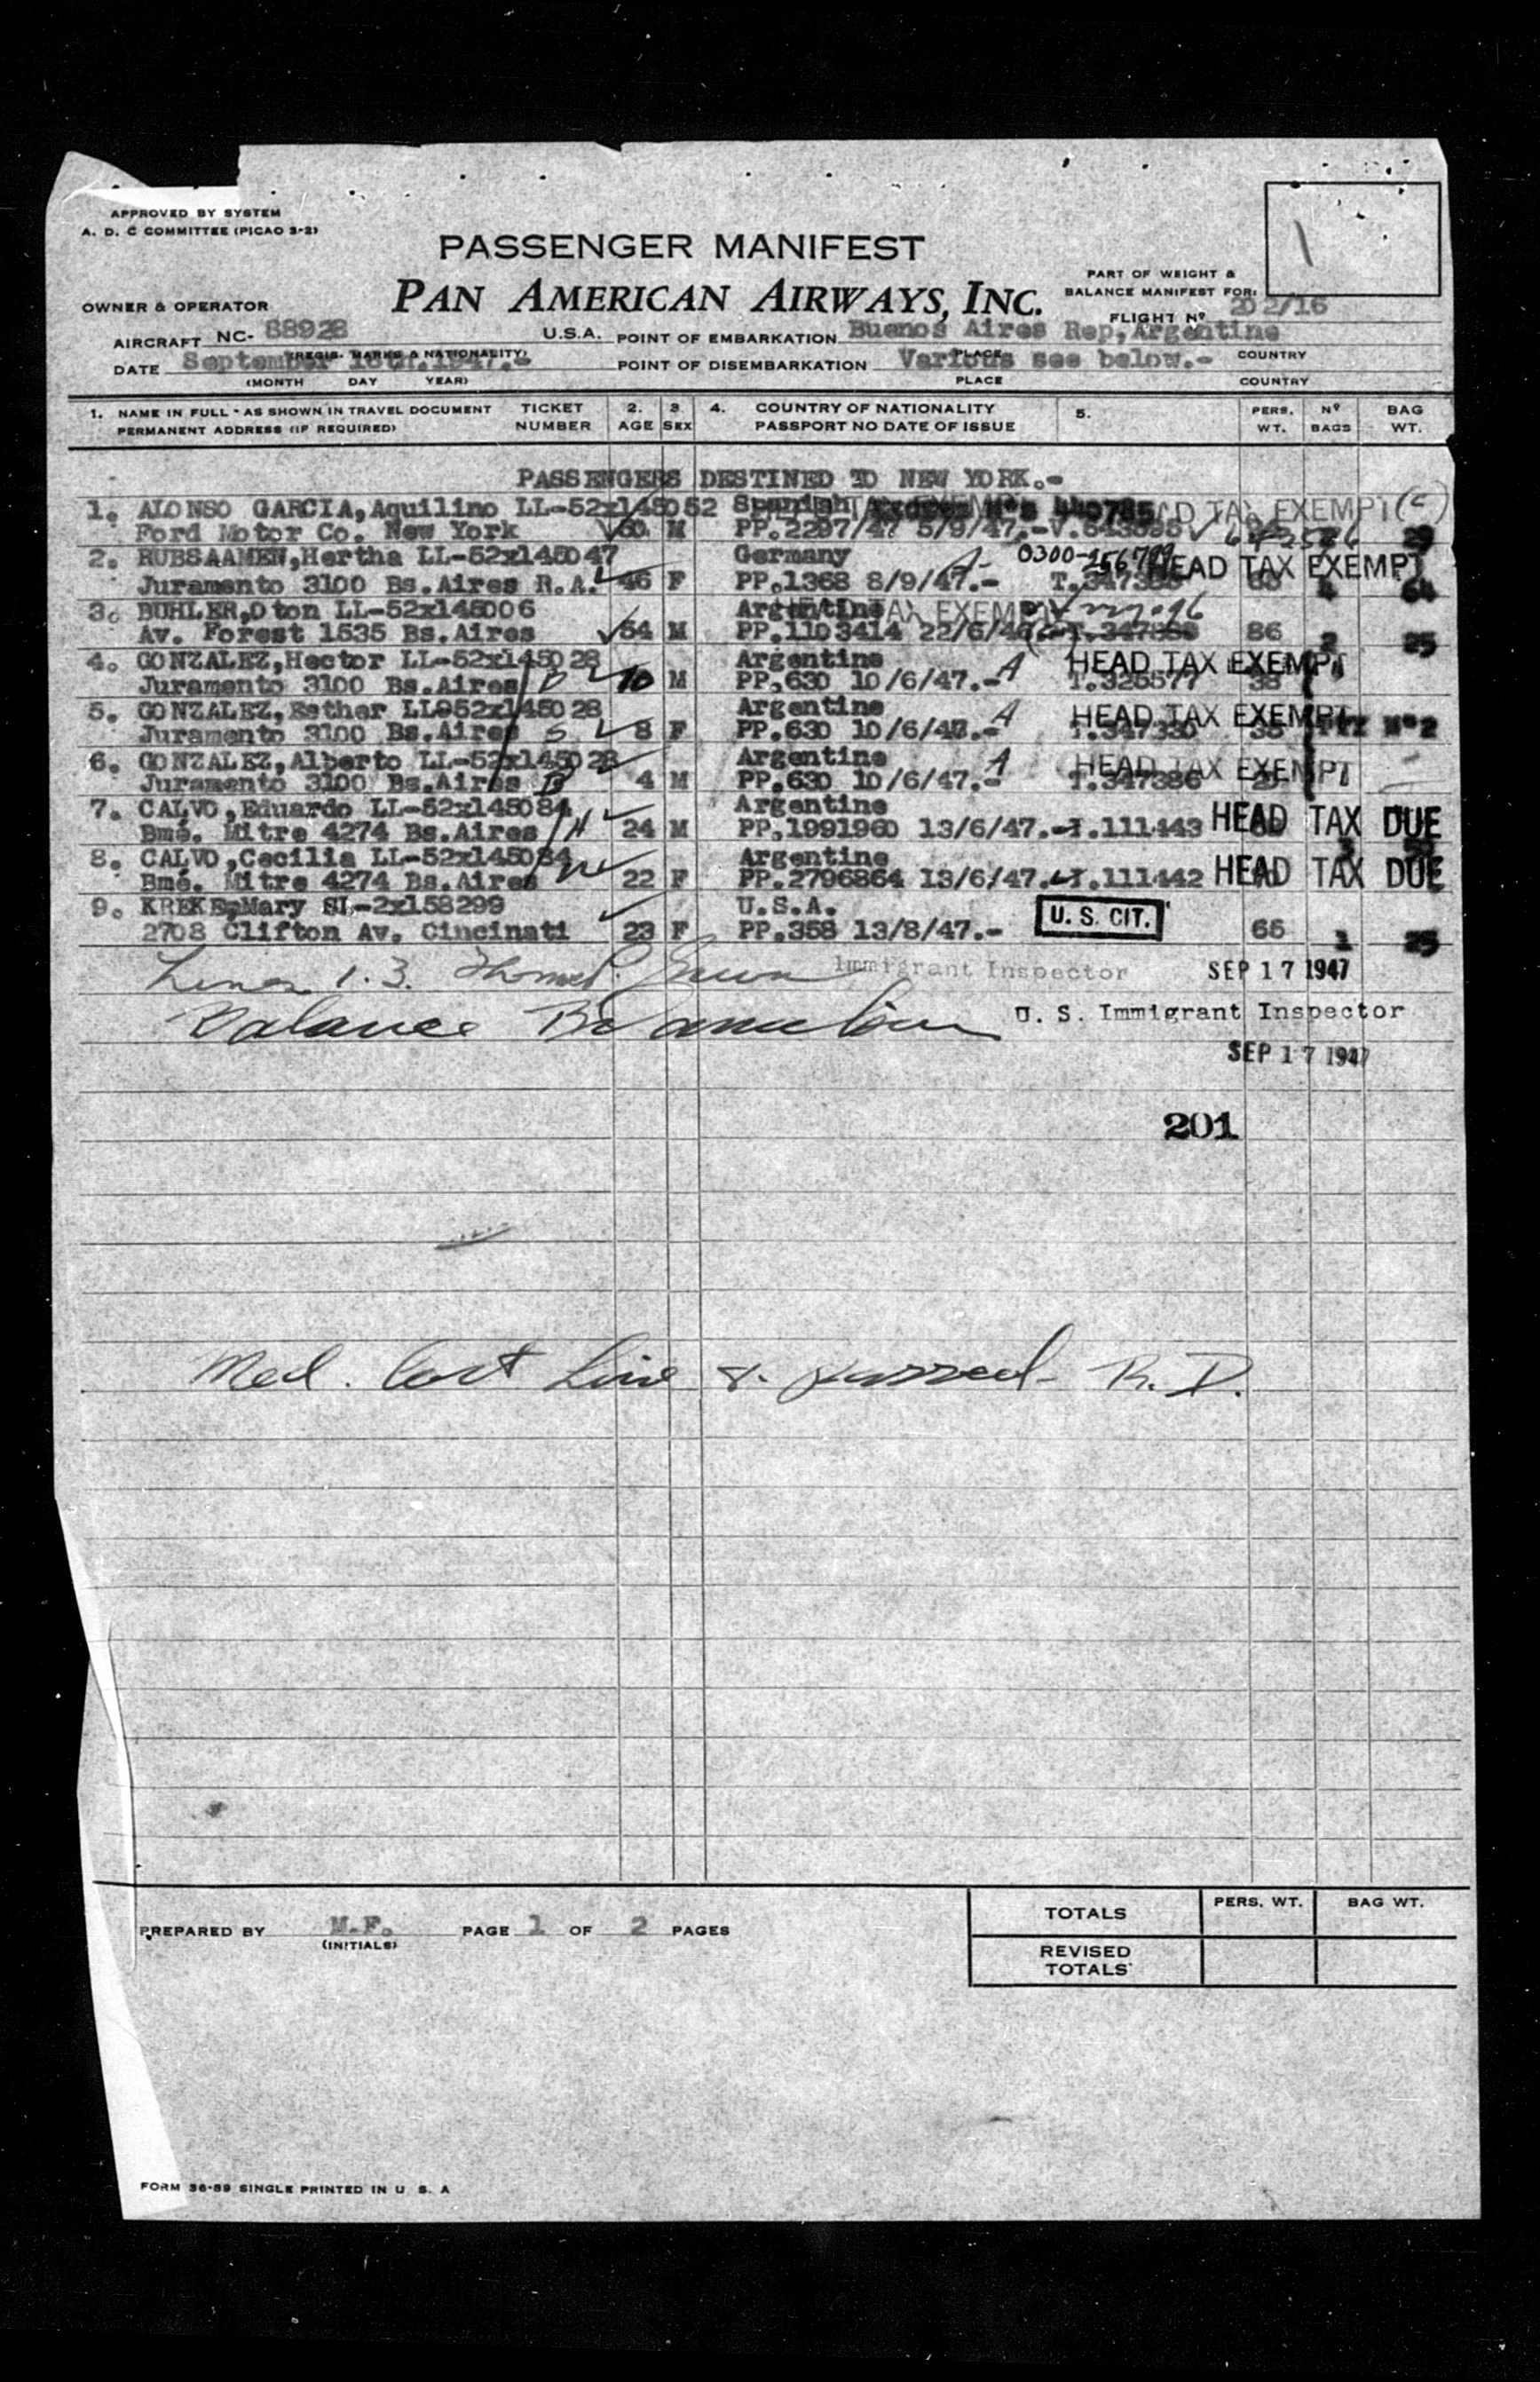 APPROVED BY SYSTEM
A. D. C COMMITTEE (PICAO 3-2)
PASSENGER MANIFEST
PAN AMERICAN AIRWAYS, INC.
PART OF WEIGHT &
BALANCE MANIFEST FOR:
FLIGHT Nº 202/16
OWNER & OPERATOR
AIRCRAFT NC- 88928 U.S.A. POINT OF EMBARKATION Buenos Aires Rep, Argentine
(REGIS. MARKS & NATIONALITY) PLACE COUNTRY
DATE September 16th, 1947.- POINT OF DISEMBARKATION Various see below.-
(MONTH DAY YEAR) PLACE COUNTRY
1. NAME IN FULL - AS SHOWN IN TRAVEL DOCUMENT TICKET 2. 3. 4. COUNTRY OF NATIONALITY 5. PERS. Nº BAG
PERMANENT ADDRESS (IF REQUIRED) NUMBER AGE SEX PASSPORT NO DATE OF ISSUE WT. BAGS WT.
PASSENGERS DESTINED TO NEW YORK.-
1. ALONSO GARCIA, Aquilino LL-52x145052 Spanish HEAD TAX EXEMPT (C)
Ford Motor Co. New York M PP.2297/47 5/9/47.-V.
2. RUBSAAMEN, Hertha LL-52x145047 Germany A- HEAD TAX EXEMPT
Juramento 3100 Bs.Aires R.A. 46 F PP.1368 8/9/47.- 4 64
3. BUHLER, Oton LL-52x145006 Argentine TAX EXEMPT
Av. Forest 1535 Bs.Aires 54 M PP.1103414 22/6/ 86 2 25
4. GONZALEZ, Hector LL-52x145028 Argentine HEAD TAX EXEMPT
Juramento 3100 Bs.Aires 10 M PP.630 10/6/47.- A T.326577 38
5. GONZALEZ, Esther LL052x145028 Argentine HEAD TAX EXEMPT
Juramento 3100 Bs.Aires 8 F PP.630 10/6/47.- A Nº2
6. GONZALEZ, Alberto LL-52x145028 Argentine HEAD TAX EXEMPT
Juramento 3100 Bs.Aires 4 M PP.630 10/6/47.- A T.347386
7. CALVO, Eduardo LL-52x145084 Argentine HEAD TAX DUE
Bmé. Mitre 4274 Bs.Aires H 24 M PP.1991960 13/6/47.-T.111443
8. CALVO, Cecilia LL-52x145084 Argentine HEAD TAX DUE
Bmé. Mitre 4274 Bs.Aires W 22 F PP.2796864 13/6/47.-T.111442
9. KREKE, Mary SL-2x158299 U.S.A. U. S. CIT.
2708 Clifton Av. Cincinati 23 F PP.358 13/8/47.- 65 1 25
Lines 1.3. Immigrant Inspector SEP 17 1947
Balance U. S. Immigrant Inspector
SEP 17 1947
201
Med. last Line & passed- R. D.
PREPARED BY M.F. PAGE 1 OF 2 PAGES
(INITIALS)
TOTALS PERS. WT. BAG WT.
REVISED
TOTALS
FORM 36-89 SINGLE PRINTED IN U. S. A